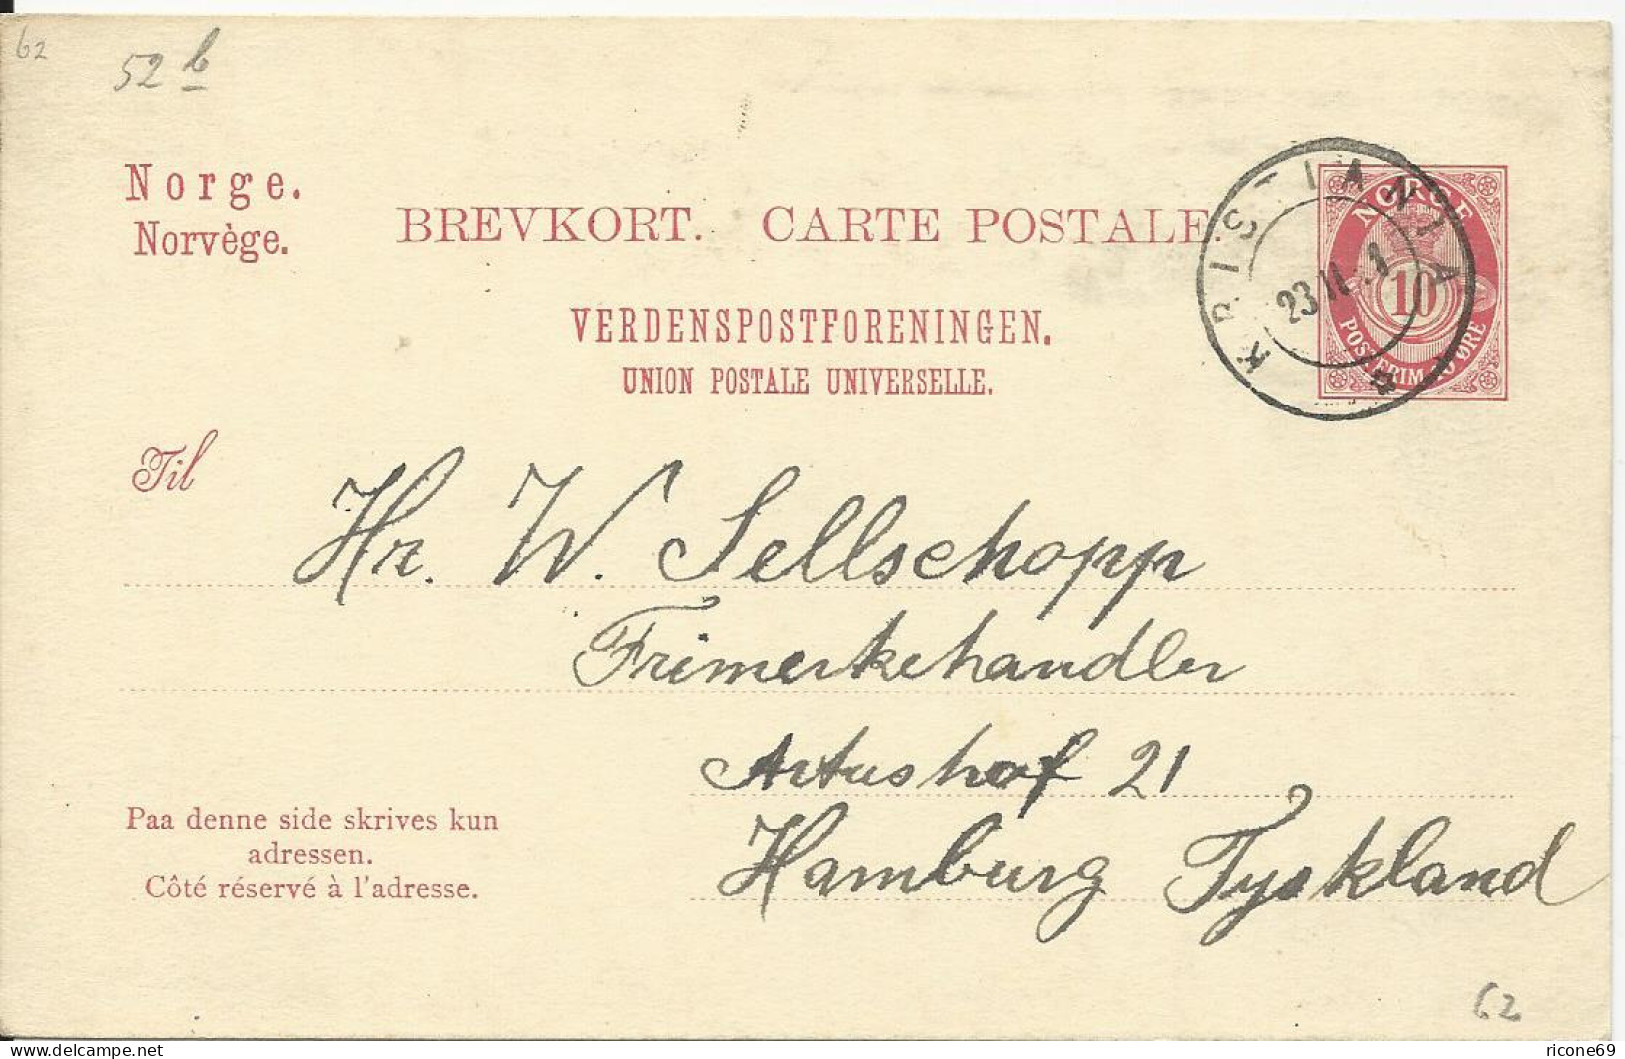 62
52 b
Norge.
Norvège.
BREVKORT. CARTE POSTALE.
VERDENSPOSTFORENINGEN.
UNION POSTALE UNIVERSELLE.
KRISTIANIA
23 II
NORGE
10
POSTFRIM. 10 ØRE
Til
Hr. W. Sellschopp
Frimerkehandler
Artushof 21
Hamburg Tyskland
Paa denne side skrives kun
adressen.
Côté réservé à l'adresse.
62
www.delcampe.net
ricone69